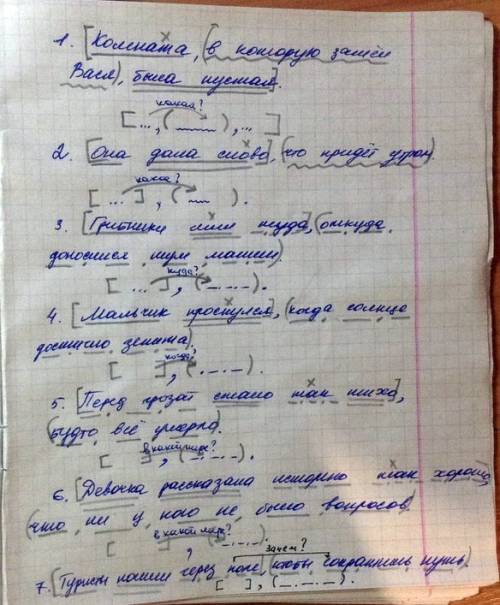 1. [Комната, (в которую зашёл
Вася), была пустая].
какая?
[..., ( ), ... ]
2. [Она дала слово], (что придёт утром).
какое?
[ ... ], ( ).
3. [Грибники шли туда], (откуда
доносился шум машин).
куда?
[ ... ], (. _ . _ .).
4. [Мальчик проснулся], (когда солнце
достигло зенита).
когда?
[ ], (. _ . _ .).
5. [Перед грозой стало так тихо],
(будто всё умерло).
в какой мере?
[ ], (. _ . _ .).
6. [Девочка рассказала историю так хорошо],
(что ни у кого не было вопросов).
в какой мере?
[ ], (. _ . _ .).
зачем?
7. [Туристы пошли через поле], (чтобы сократить путь).
[ ], (. _ . _ .).